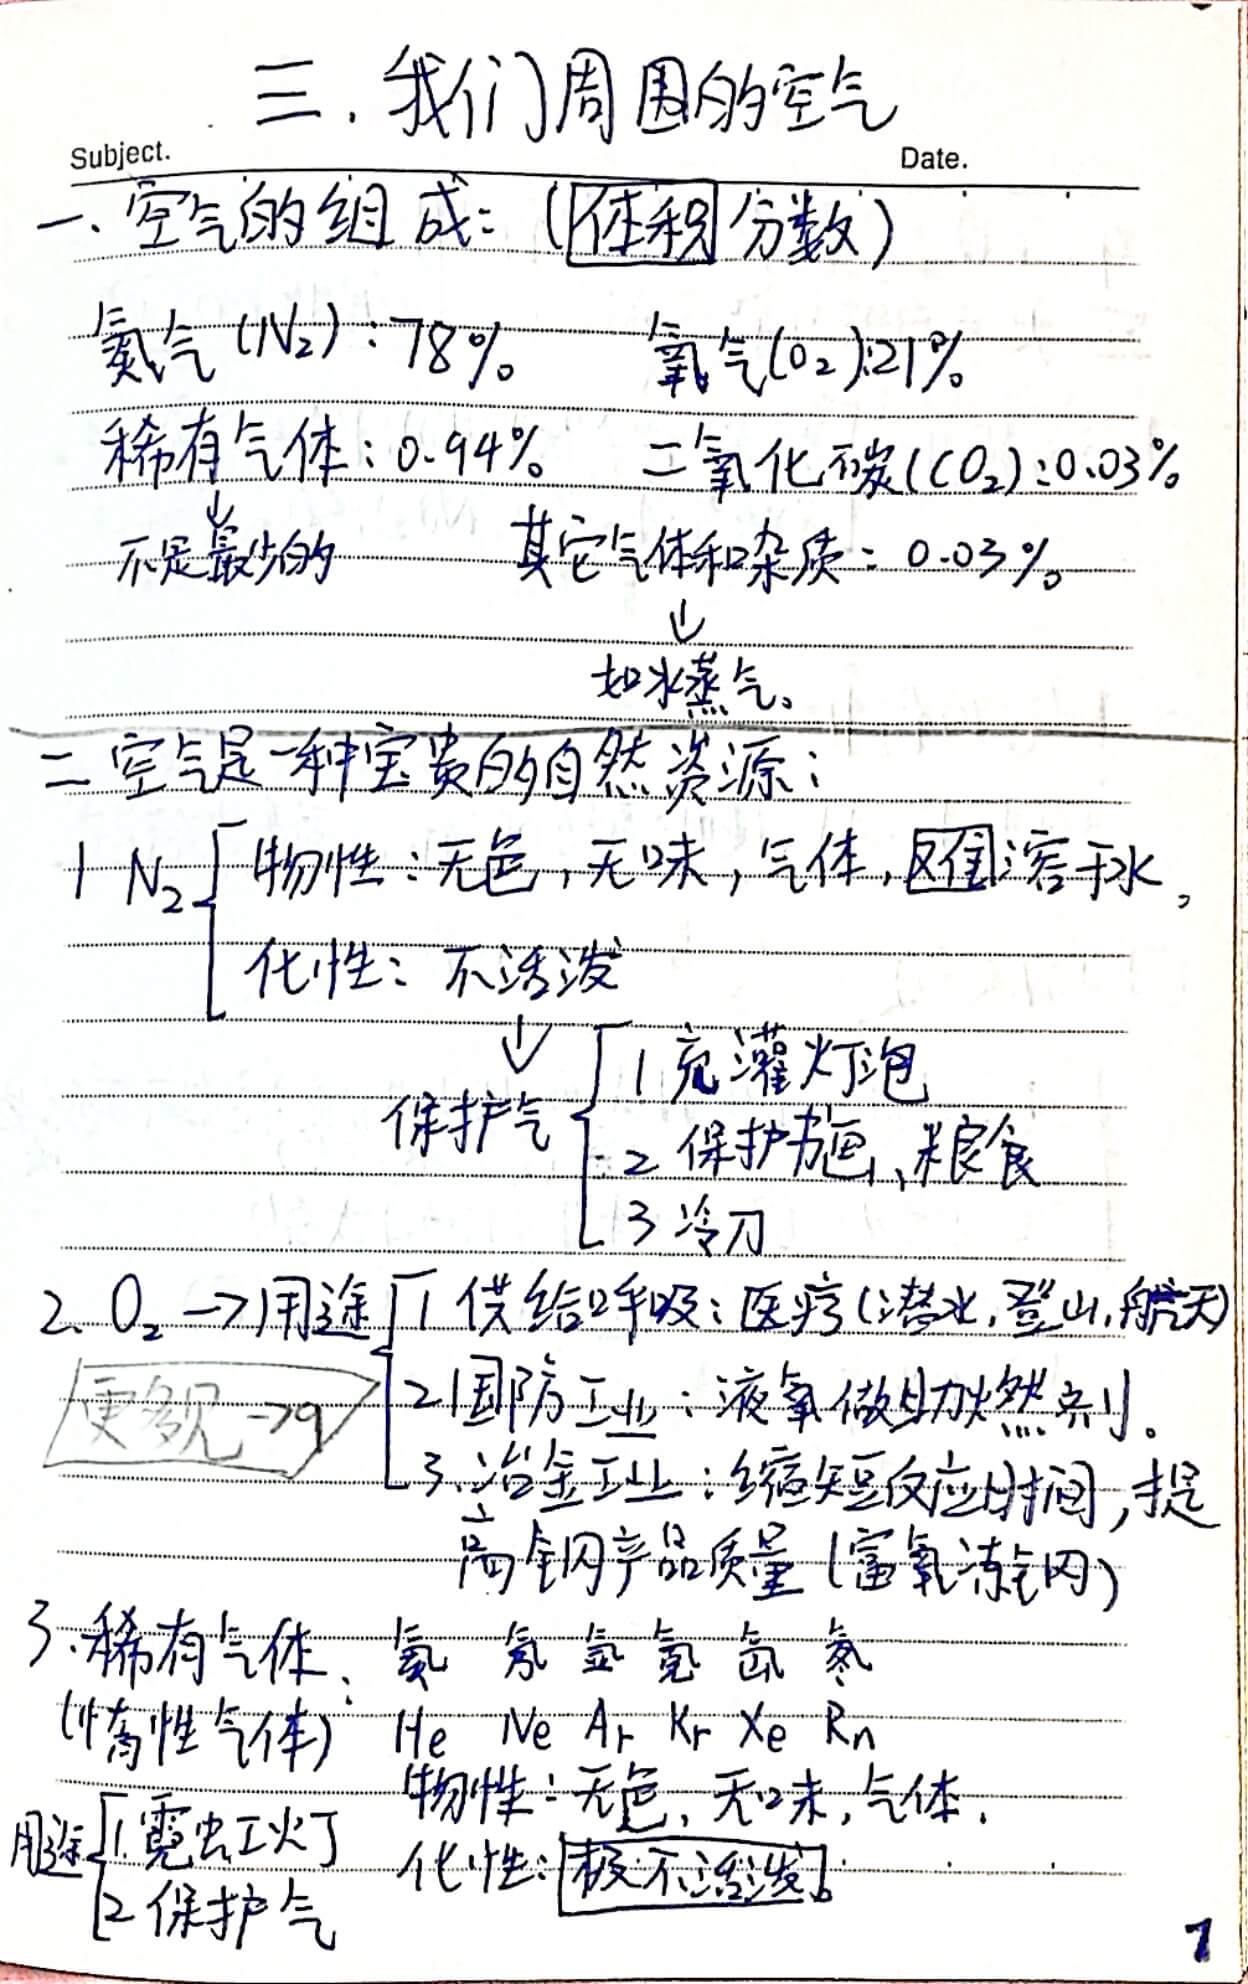 三.我们周围的空气
Subject. Date.
一.空气的组成:(体积分数)
氮气(N₂):78%。 氧气(O₂):21%。
稀有气体:0.94%。 二氧化碳(CO₂):0.03%。
↓
不是最少的 其它气体和杂质:0.03%。
↓
如水蒸气。
二 空气是一种宝贵的自然资源:
1 N₂ 物性:无色,无味,气体,难溶于水。
化性:不活泼
↓
保护气 1 充灌灯泡
2 保护书画、粮食
3 冷刀
2. O₂→用途 1 供给呼吸:医疗(潜水,登山,航天)
更多见→9 2 国防工业:液氧做助燃剂。
3.冶金工业:缩短反应时间,提
高钢产品质量(富氧炼钢)
3.稀有气体: 氦 氖 氩 氪 氙 氡
(惰性气体) He Ne Ar Kr Xe Rn
物性:无色,无味,气体.
用途 1.霓虹灯 化性:极不活泼。
2 保护气
7